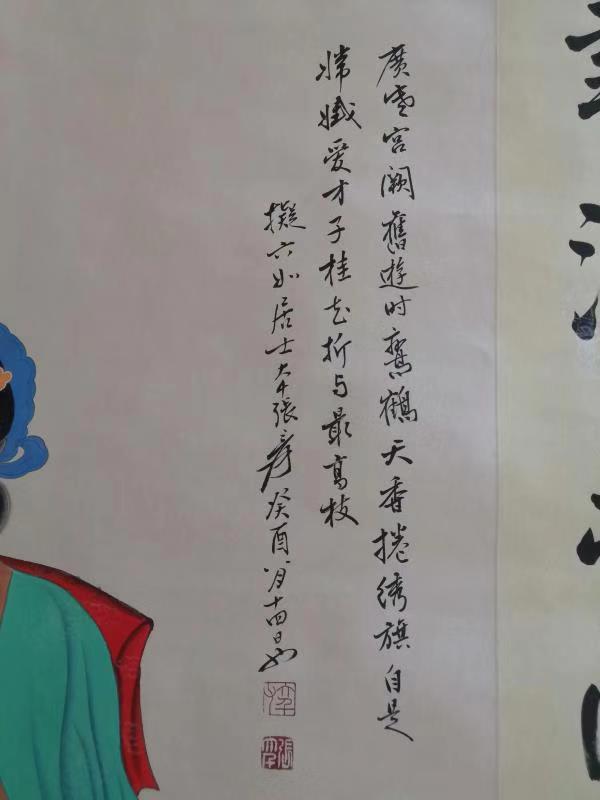 廣寒宫闕舊遊时鸞鶴天香捲绣旗自是
嫦娥爱才子桂花折与最高枝
擬六如居士大千張爰癸酉八月十四日